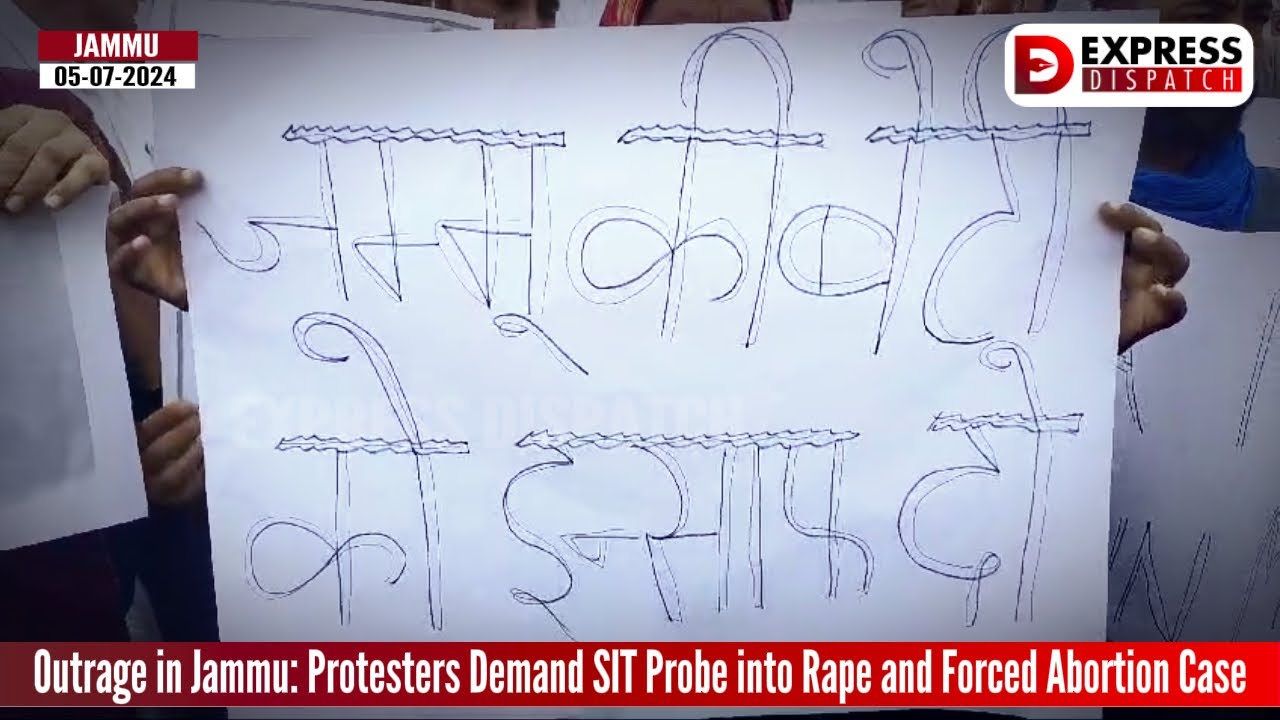 JAMMU
05-07-2024
EXPRESS
DISPATCH
जम्मू की बेटी
को इन्साफ दो
EXPRESS DISPATCH
Outrage in Jammu: Protesters Demand SIT Probe into Rape and Forced Abortion Case